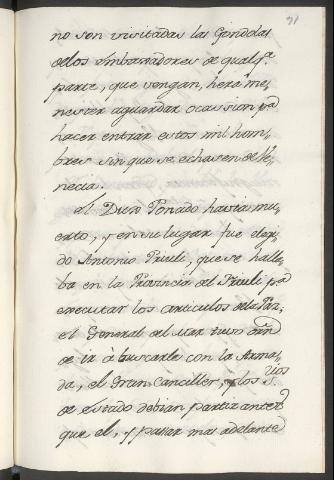 71
no son visitadas las Gondolas
de los Embaxadores de qualqᵃ
parte, que vengan, hera me-
nester aguardar ocassion pᵃ
hacer entrar estos mil hom-
bres sin que se echasen de Ve-
necia.
el Duso Donado havia mu-
erto, y en su lugar fue eleg-
do Antonio Priuli, que se halla-
ba en la Provincia del Friuli pᵃ
executar los articulos de la Paz,
el General del Mar tuvo orⁿ
de ir à buscarle con la Arma-
da, el Gran Canciller, y los Sʳⁱᵒˢ
de estado debian partir antes
que el, y passar mas adelante